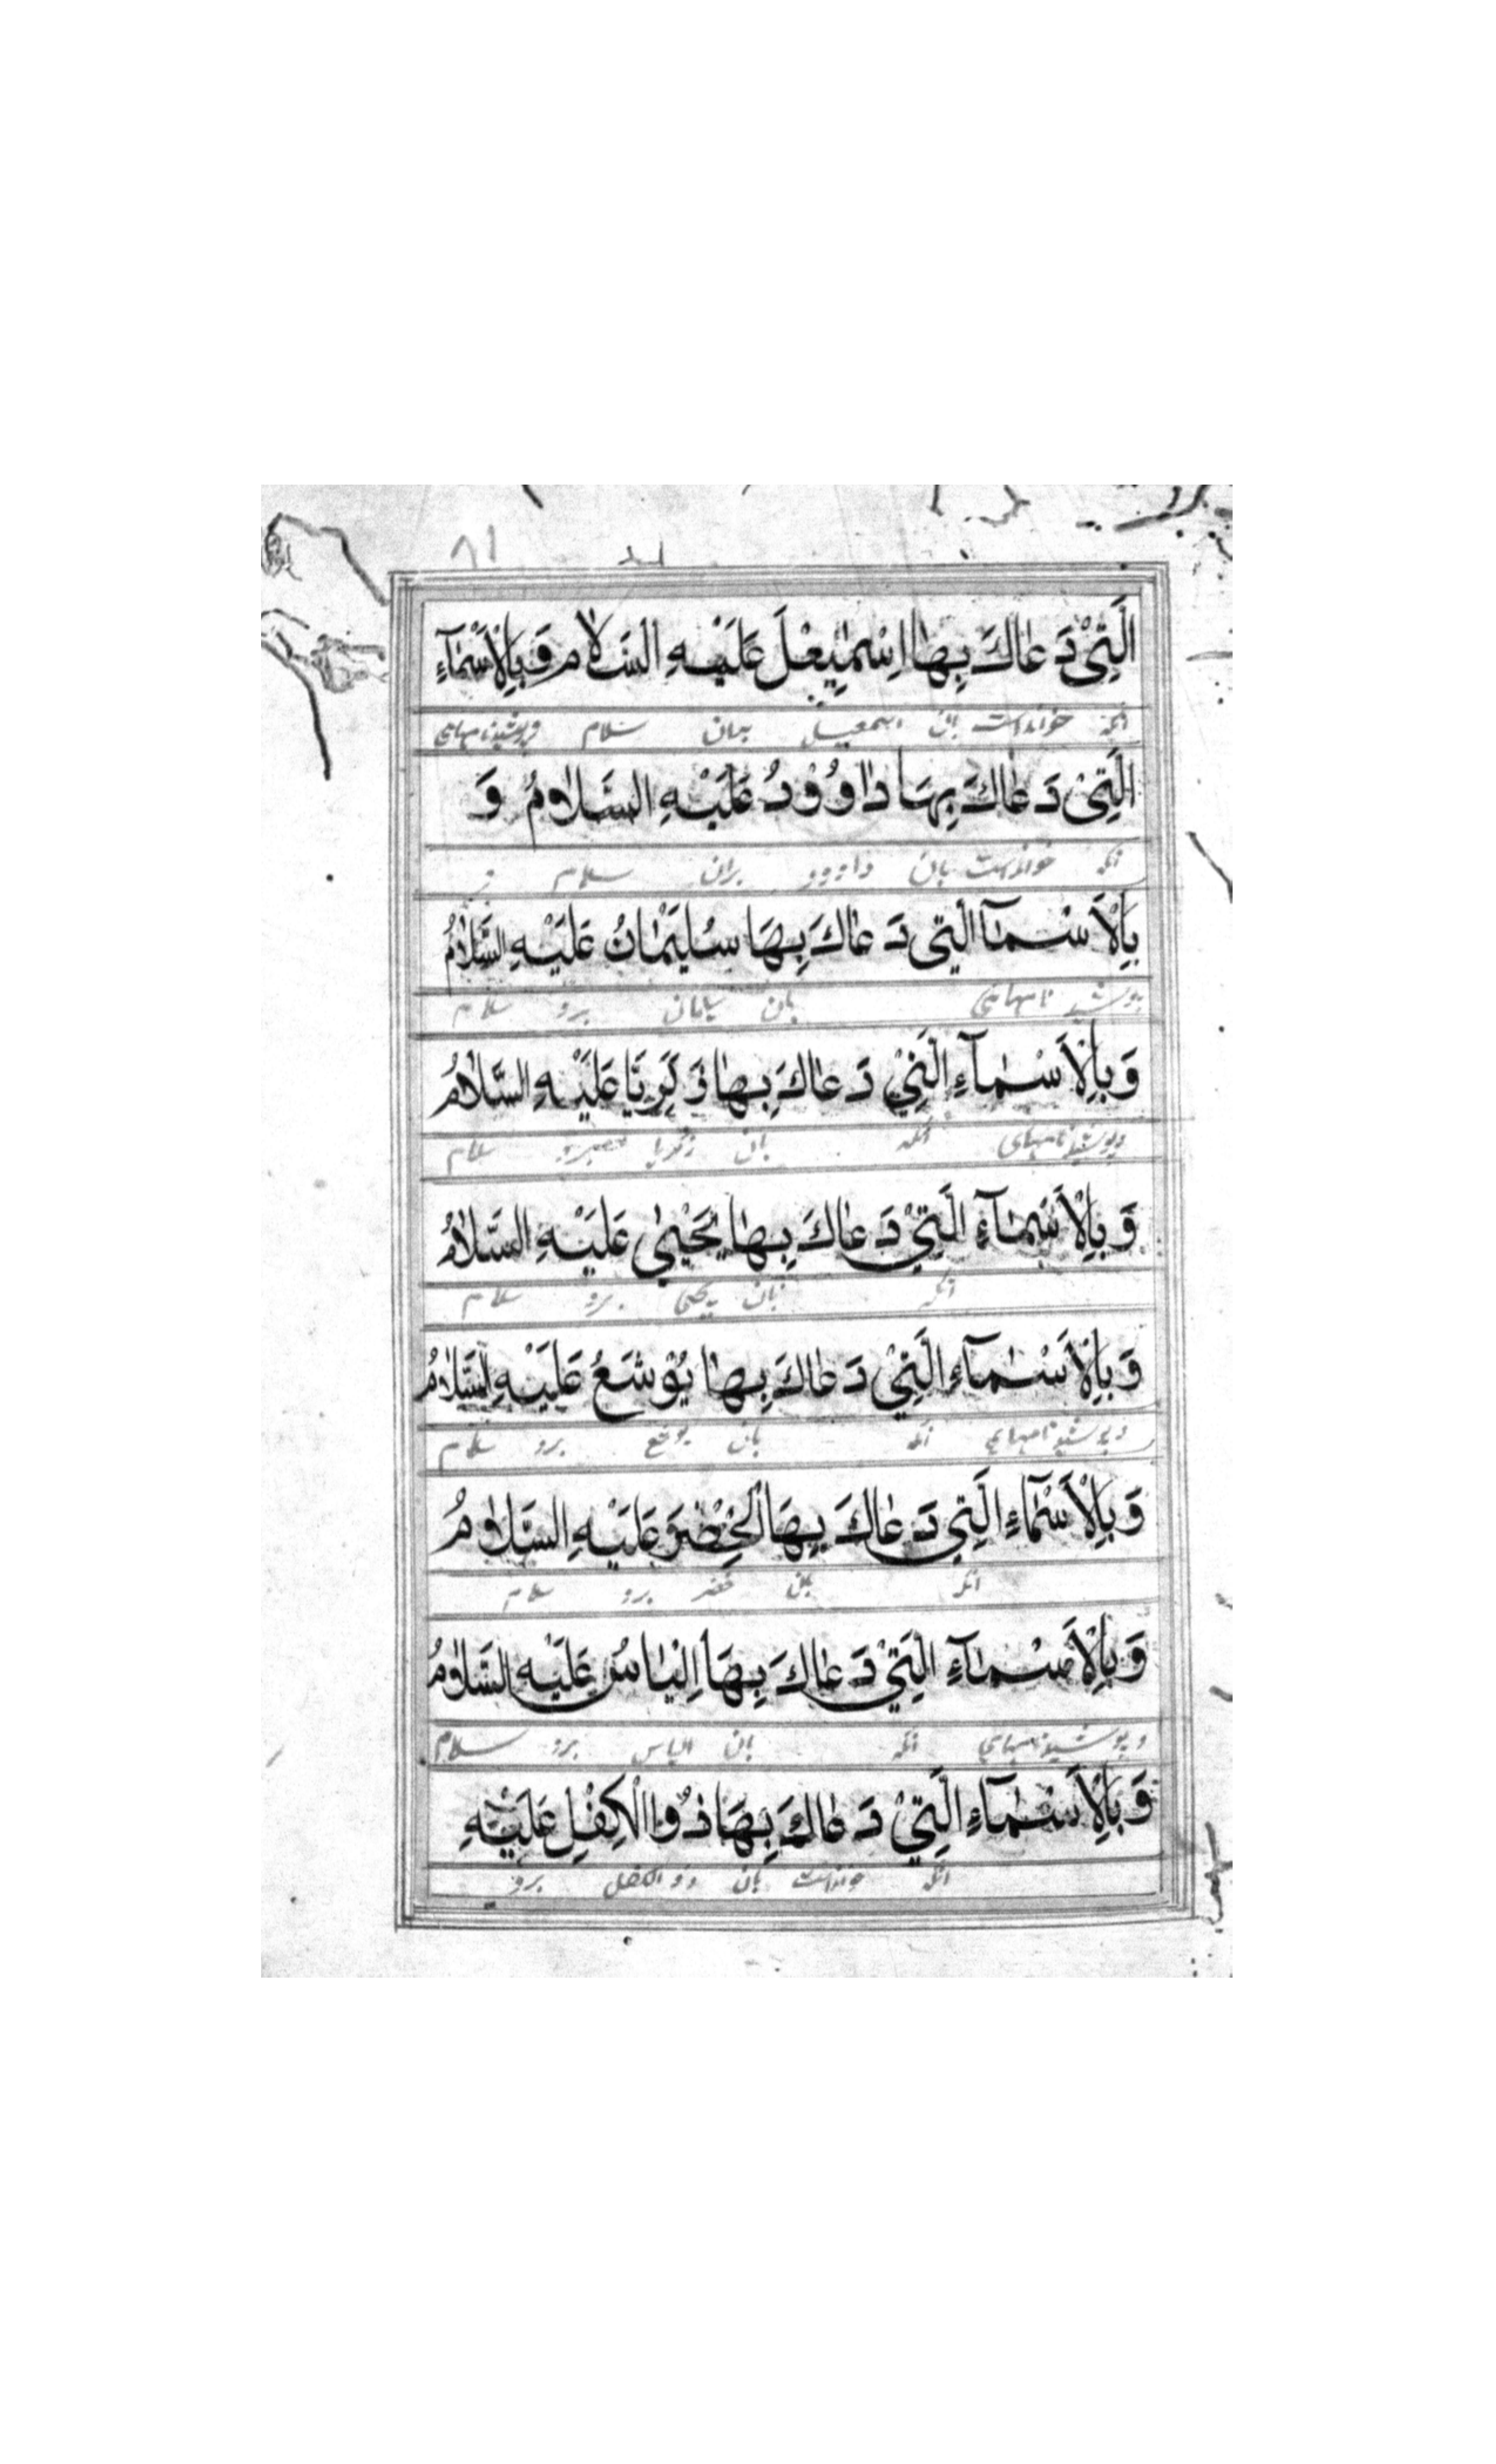 ٨١
الَّتِيْ دَعَاكَ بِهَا اِسْمٰعِيْلَ عَلَيْهِ السَّلَام وَبِالْاَسْمَآءِ
انکه خوانداست بان اسمعیل بدان سلام
الَّتِيْ دَعَاكَ بِهَا دَاوُوْدُ عَلَيْهِ السَّلَامُ وَ
انکه خوانداست بان داوود بران سلام
بِالْاَسْمَآ الَّتِي دَعَاكَ بِهَا سُلَيْمَانُ عَلَيْهِ السَّلَامُ
نامهای بان برو سلام
وَبِالْاَسْمَآءِ الَّتِيْ دَعَاكَ بِهَا زَكَرِيَّا عَلَيْهِ السَّلَامُ
نامهای انکه بان زکریا سلام
وَبِالْاَسْمَآءِ الَّتِيْ دَعَاكَ بِهَا يَحْيٰى عَلَيْهِ السَّلَامُ
انکه بان یحیی برو سلام
وَبِالْاَسْمَآءِ الَّتِيْ دَعَاكَ بِهَا يُوْشَعُ عَلَيْهِ السَّلَامُ
نامهای انکه بان یوشع برو سلام
وَبِالْاَسْمَآءِ الَّتِي دَعَاكَ بِهَا الْخِضْرَ عَلَيْهِ السَّلَامُ
انکه بان خضر برو سلام
وَبِالْاَسْمَآءِ الَّتِيْ دَعَاكَ بِهَا اِلْيَاسُ عَلَيْهِ السَّلَامُ
نامهای انکه بان الیاس برو سلام
وَبِالْاَسْمَآءِ الَّتِيْ دَعَاكَ بِهَا ذُوالْكِفْلِ عَلَيْهِ
انکه خوانداست بان ذو الکفل برو